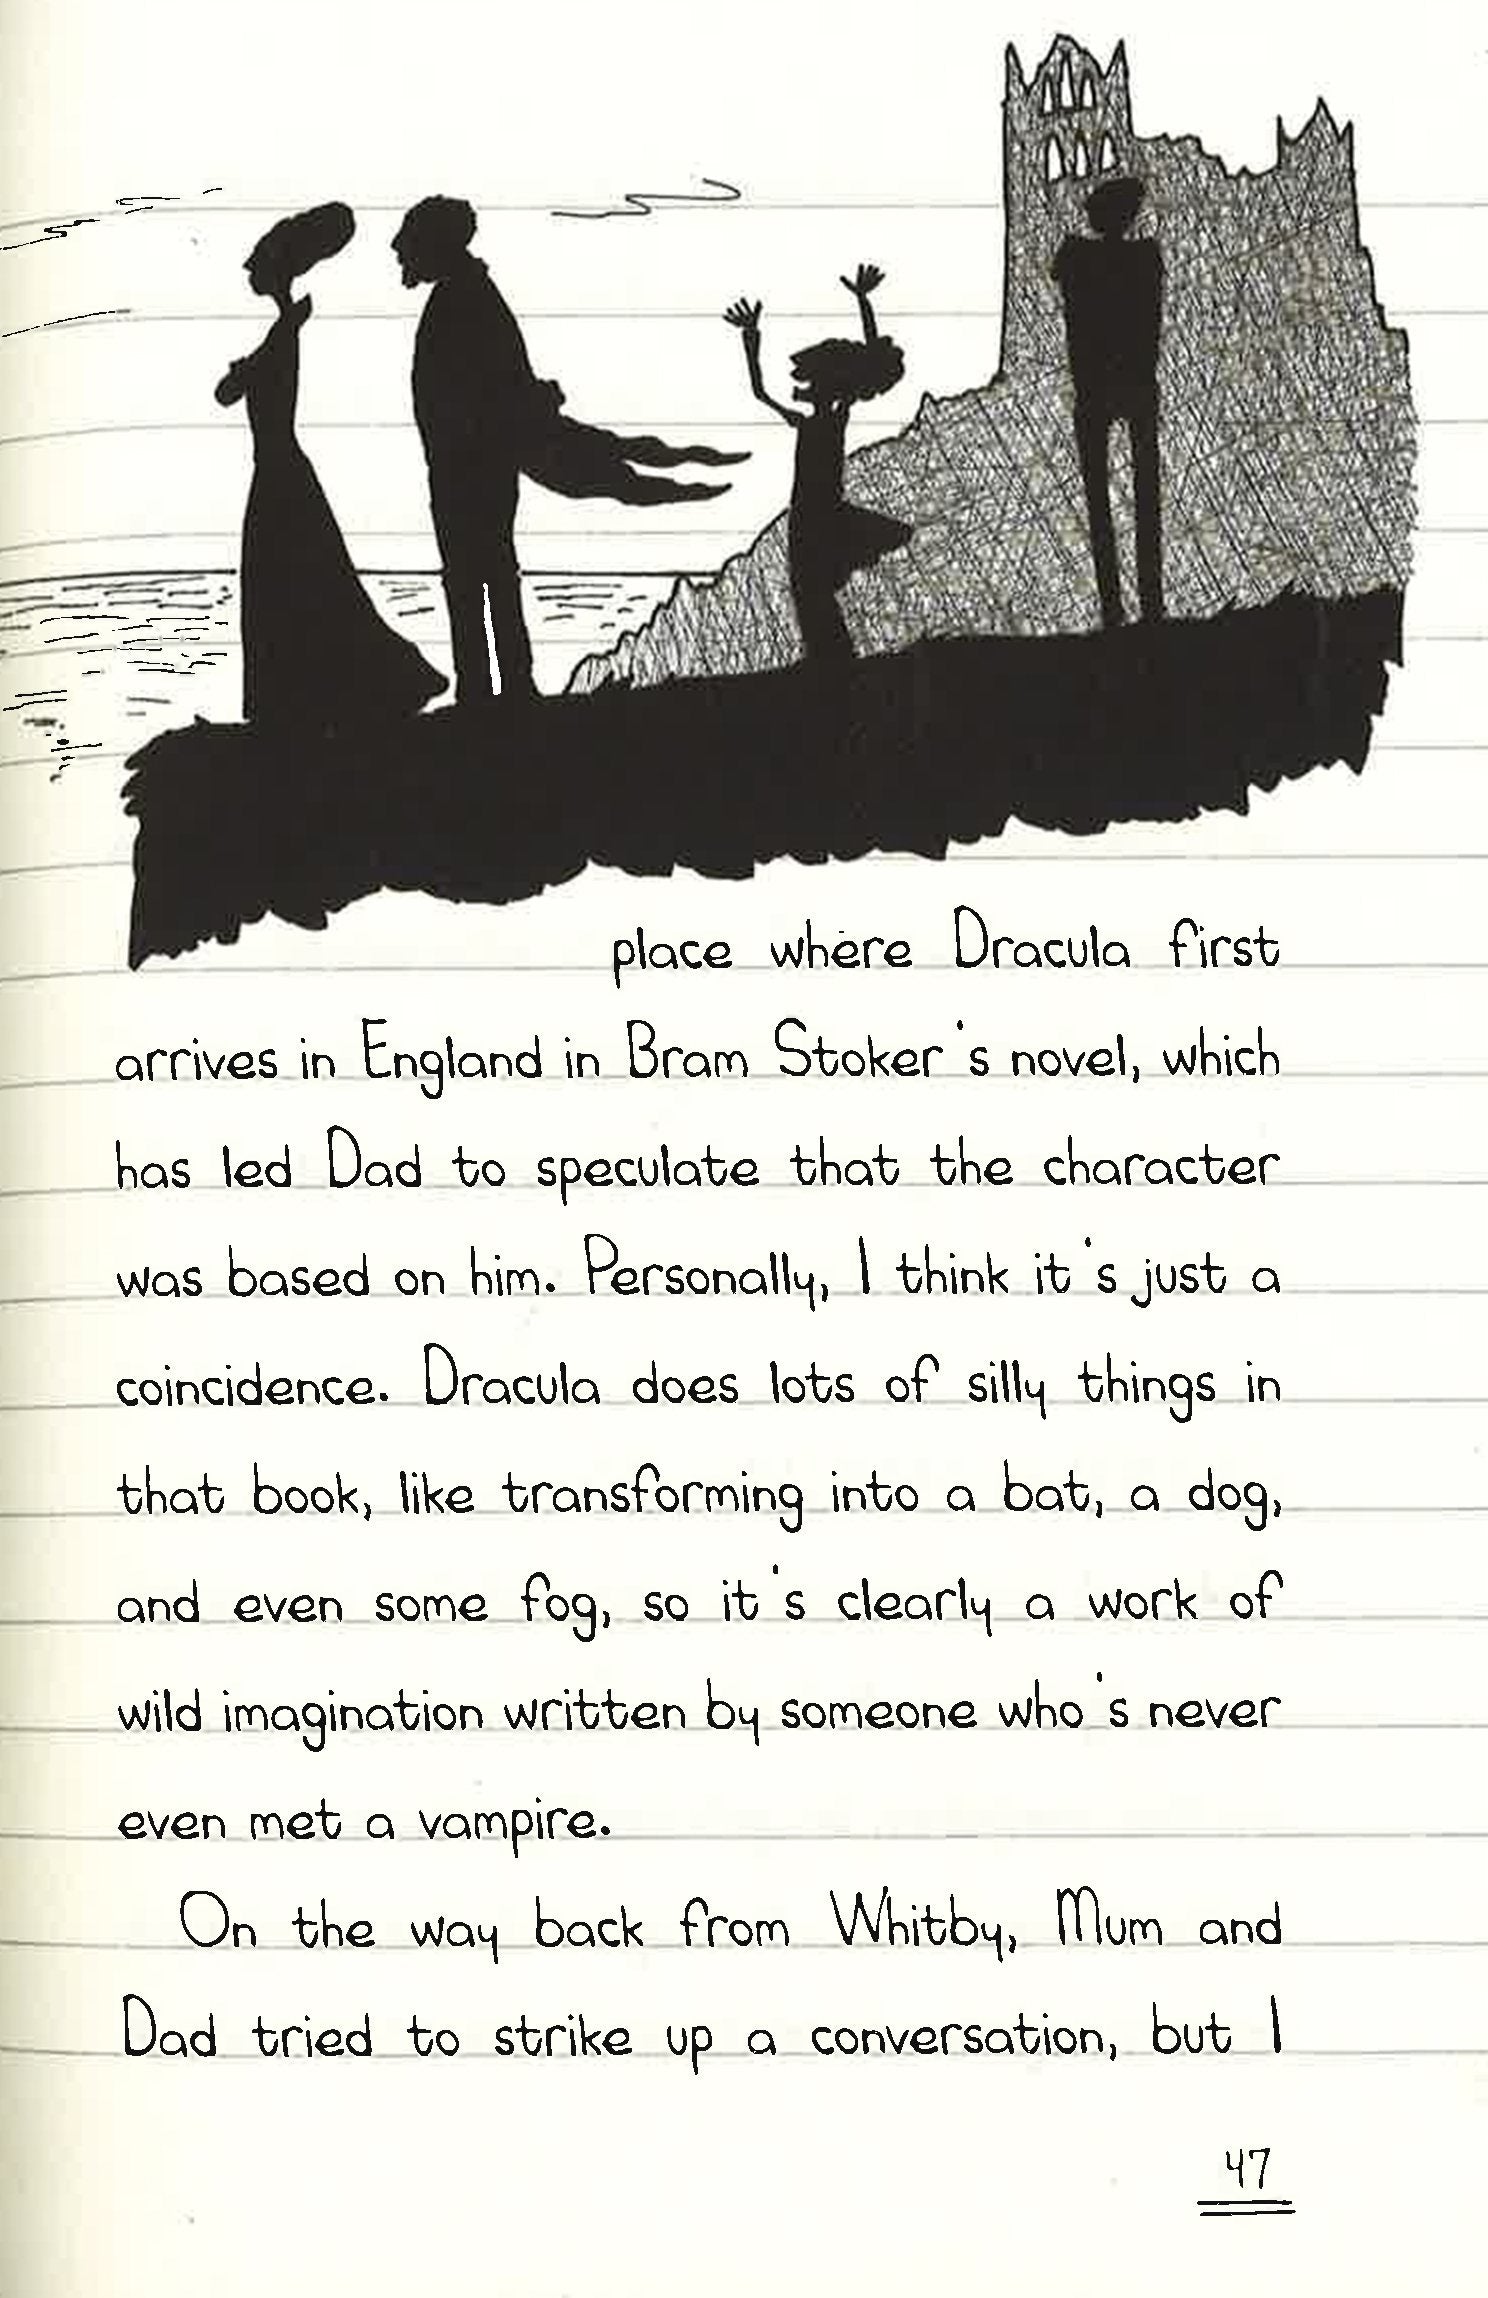 place where Dracula first
arrives in England in Bram Stoker's novel, which
has led Dad to speculate that the character
was based on him. Personally, I think it's just a
coincidence. Dracula does lots of silly things in
that book, like transforming into a bat, a dog,
and even some fog, so it's clearly a work of
wild imagination written by someone who's never
even met a vampire.
On the way back from Whitby, Mum and
Dad tried to strike up a conversation, but I
47